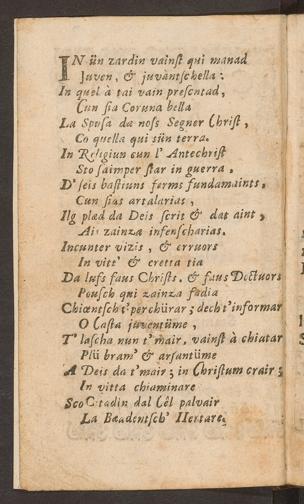 IN ün zardin vainst qui manad
Juven, & juvàntschella:
In quel à tai vain presentad,
Cun sia Coruna bella
La Spusa da noss Segner Christ,
Co quella qui sün terra.
In Religiun cun l' Antechrist
Sto saimper star in guerra.
D' seis bastiuns ferms fundamaints,
Cun sias artalarias,
Ilg plæd da Deis scrit & dat aint,
Ais zainza infenscharias.
Incunter vizis, & erruors
In vitt' & cretta tia
Da lufs faus Christs. & faus Doctuors
Pousch qui zainza fadia
Chiœntsch t'perchürar; decht'informar
O Casta juventüme,
T' lascha nun t'mair, vainst à chiatar
Plü bram' & arsantüme
A Deis da t'mair; in Christum crair;
In vitta chiaminare
Sco Citadin dal Cêl palvair
La Bœadentsch' Hertare.